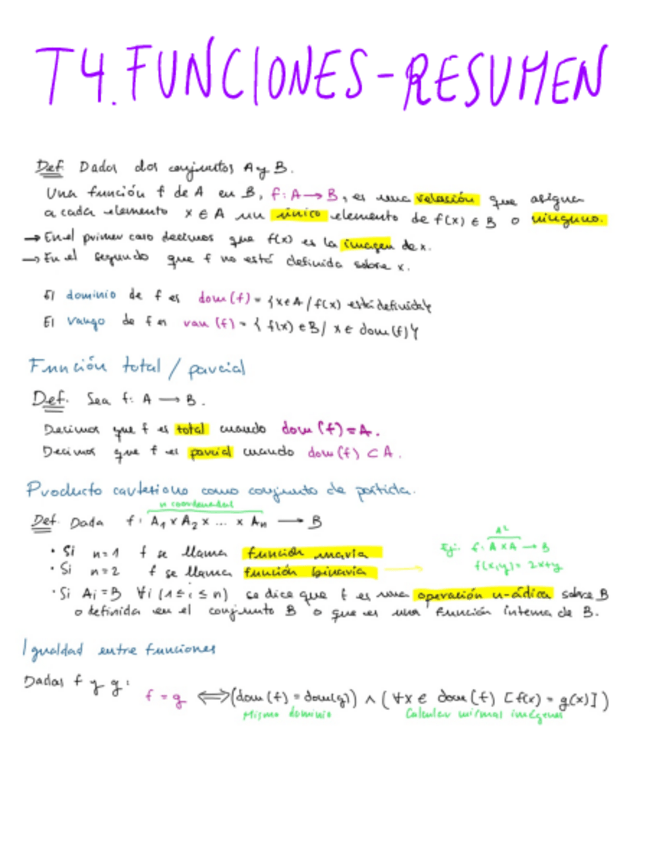 T4. FUNCIONES - RESUMEN
Def Dados dos conjuntos A y B.
Una función f de A en B, f: A → B, es una relación que asigna
a cada elemento x ∈ A un único elemento de f(x) ∈ B o ninguno.
→ En el primer caso decimos que f(x) es la imagen de x.
→ En el segundo que f no está definida sobre x.
El dominio de f es dom(f) = {x ∈ A / f(x) está definida}
El rango de f es ran(f) = { f(x) ∈ B / x ∈ dom(f)}
Función total / parcial
Def. Sea f: A → B.
Decimos que f es total cuando dom(f) = A.
Decimos que f es parcial cuando dom(f) ⊂ A.
Producto cartesiano como conjunto de partida.
n coordenadas
Def Dada f: A₁ x A₂ x ... x Aₙ → B
• Si n=1 f se llama función unaria
• Si n=2 f se llama función binaria
A²
Ej: f: A x A → B
f(x,y) = 2x+y
• Si Ai = B ∀i (1 ≤ i ≤ n) se dice que f es una operación n-ádica sobre B
o definida en el conjunto B o que es una función interna de B.
Igualdad entre funciones
Dadas f y g:
f = g ⟺ (dom(f) = dom(g)) ∧ (∀x ∈ dom(f) [f(x) = g(x)])
Mismo dominio Calcular mismas imágenes